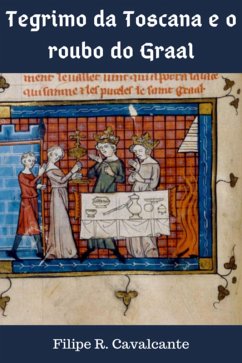 Tegrimo da Toscana e o
roubo do Graal
ment le uallet uint qui aporta la
qui sainne & les puceles le saint graal
Filipe R. Cavalcante